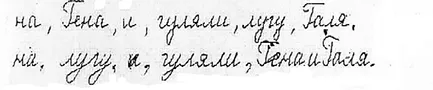 на, Гена, и, гуляли, лугу, Галя.
на, лугу, и, гуляли, Гена и Галя.